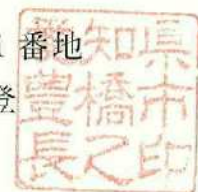 番地
登
愛知県
豊橋市
長之印